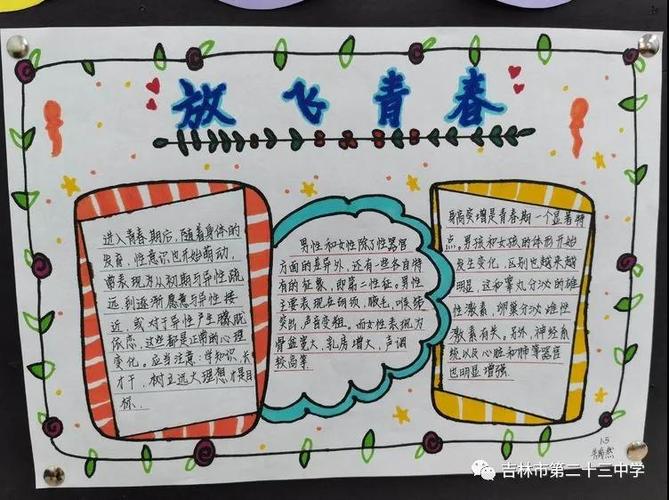 放飞青春
进入青春期后，随着身体的
发育，性意识也开始萌动，
曲表现为从初期与异性疏
远，到逐渐愿意与异性接
近，或对于异性产生朦胧
依恋，这些都是正常的心理
变化。应当注意：学知识，长
才干，树立远大理想才是目
标．
男性和女性除了性器官
方面的差异外，还有一些各自特
有的征象，即第二性征。男性
主要表现在胡须，腋毛，喉结
突出，声音变粗。而女性表现为
骨盆宽大，乳房增大，声调
较高等
身高突增是青春期一个显著特
点。男孩和女孩的体形开始
发生变化，区别也越来越
明显，这和睾丸分泌的雄
性激素，卵巢分泌雌性
激素有关。另外，神经系
统以及心脏和肺等器官
也明显增强
1.5
吉林市第二十三中学